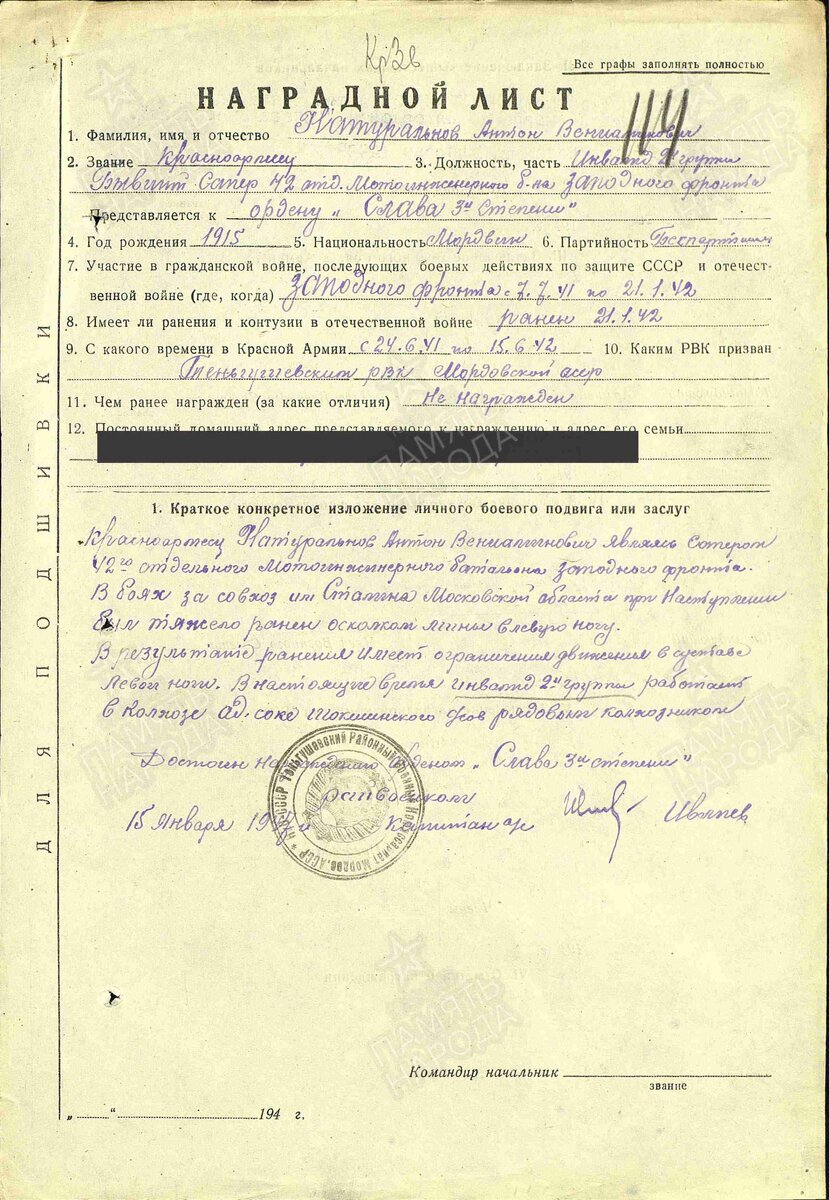 КрЗв
Все графы заполнять полностью
НАГРАДНОЙ ЛИСТ
114
1. Фамилия, имя и отчество Натуральнов Антон Вениаминович
2. Звание Красноармеец 3. Должность, часть Инвалид 2й группы
Бывший Сапер 42 отд. Мотоинженерного б-на Западного фронта
Представляется к ордену „Слава 3й степени"
4. Год рождения 1915 5. Национальность Мордвин 6. Партийность Беспартийный
7. Участие в гражданской войне, последующих боевых действиях по защите СССР и отечест-
венной войне (где, когда) Западного фронта с 7.7.41 по 21.1.42
8. Имеет ли ранения и контузии в отечественной войне ранен 21.1.42
9. С какого времени в Красной Армии с 24.6.41 по 15.6.42 10. Каким РВК призван
Теньгушевским рвк Мордовской асср
11. Чем ранее награжден (за какие отличия) Не награжден
12. Постоянный домашний адрес представляемого к награждению и адрес его семьи
1. Краткое конкретное изложение личного боевого подвига или заслуг
Красноармеец Натуральнов Антон Вениаминович являясь сапером
42го отдельного Мотоинжинерного батальона западного фронта.
В боях за совхоз им Сталина Московской области при Наступлении
был тяжело ранен осколком мины в левую ногу.
В результате ранения имеет ограничения движения в суставе
левой ноги. В настоящие время инвалид 2й группы работает
в колхозе Шокшинского рядовым колхозником
Достоин награждения Орденом „Слава 3й степени"
райвоенком
15 Января Капитан Ивлиев
Теньгушовский Районный Военный Комиссариат Мордов. АССР
Командир начальник
звание
„ " 194 г.
ДЛЯ ПОДШИВКИ
ПАМЯТЬ НАРОДА